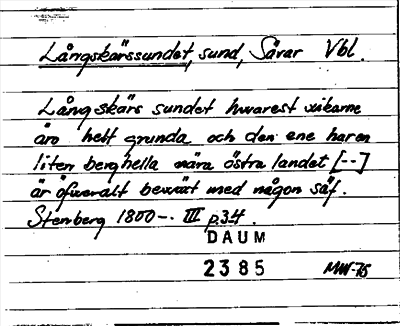 Långskärssundet, sund, Sävar Vbl.
Långskärs sundet hwarest wikarne
äro helt grunda och den ene har en
liten berghella nära östra landet [--]
är öfweralt bewäxt med någon säf.
Stenberg 1800-. III p.34.
DAUM
2385 MW-75